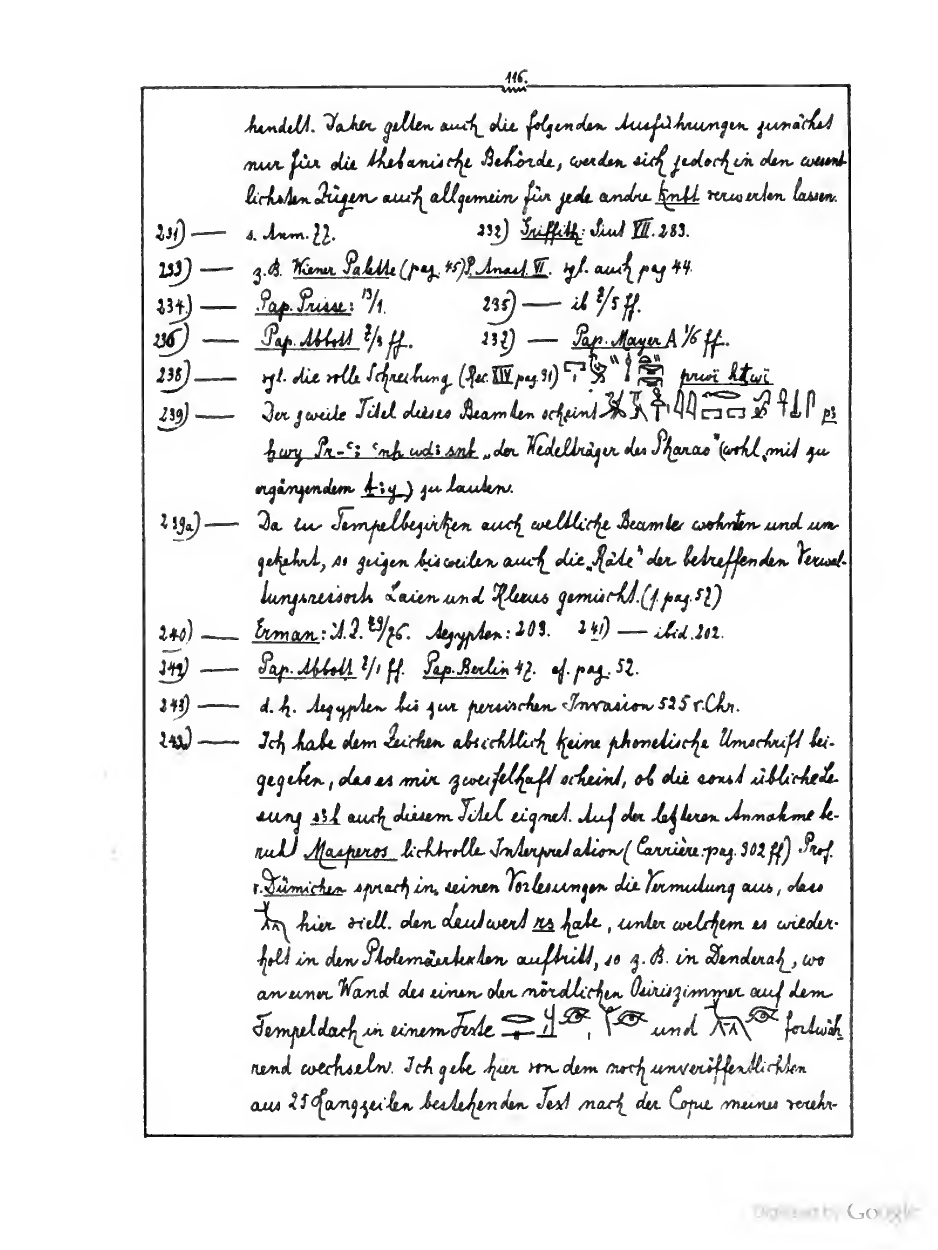 116.
handelt. Daher gelten auch die folgenden Ausführungen zunächst
nur für die thebanische Behörde, werden sich jedoch in den wesent
lichsten Zügen auch allgemein für jede andre ḳnbt verwerten lassen.
231) — s. Anm. 77. 232) Griffith: Siut VII. 283.
233) — z. B. Wiener Palette (pag. 45) P. Anast. VI. vgl. auch pag 44.
234) — Pap. Prisse: 13/1. 235) — ib 2/5 ff.
236) — Pap. Abbott 7/3 ff. 237) — Pap. Mayer A 1/6 ff.
238) — vgl. die volle Schreibung (Rec. XIV, pag. 31)
239) — Der zweite Titel dieses Beamten scheint
„der Wedelträger des Pharao“ (wohl mit zu
ergänzendem) zu lauten.
239a) — Da in Tempelbezirken auch weltliche Beamte wohnten und um-
gekehrt, so zeigen bisweilen auch die „Räte“ der betreffenden Verwal-
tungsressorts Laien und Klerus gemischt. (f. pag. 57)
240) — Erman: Ä. Z. 79/76. Aegypten: 203. 241) — ibid. 202.
242) — Pap. Abbott 7/1 ff. Pap. Berlin 47. cf. pag. 52.
243) — d. h. Aegypten bis zur persischen Invasion 525 v. Chr.
243a) — Ich habe dem Zeichen absichtlich keine phonetische Umschrift bei-
gegeben, da es mir zweifelhaft scheint, ob die sonst übliche Le-
sung auch diesem Titel eignet. Auf der letzteren Annahme be-
ruht Masperos lichtvolle Interpretation (Carrière: pag. 302 ff) Prof.
v. Dümichen sprach in seinen Vorlesungen die Vermutung aus, dass
hier viell. den Lautwert rs habe, unter welchem es wieder-
holt in den Ptolemäertexten auftritt, so z. B. in Denderah, wo
an einer Wand des einen der nördlichen Osiriszimmer auf dem
Tempeldach in einem Texte und fortwäh
rend wechseln. Ich gebe hier von dem noch unveröffentlichten
aus 25 Langzeilen bestehenden Text nach der Copie meines verehr-
Digitized by Google